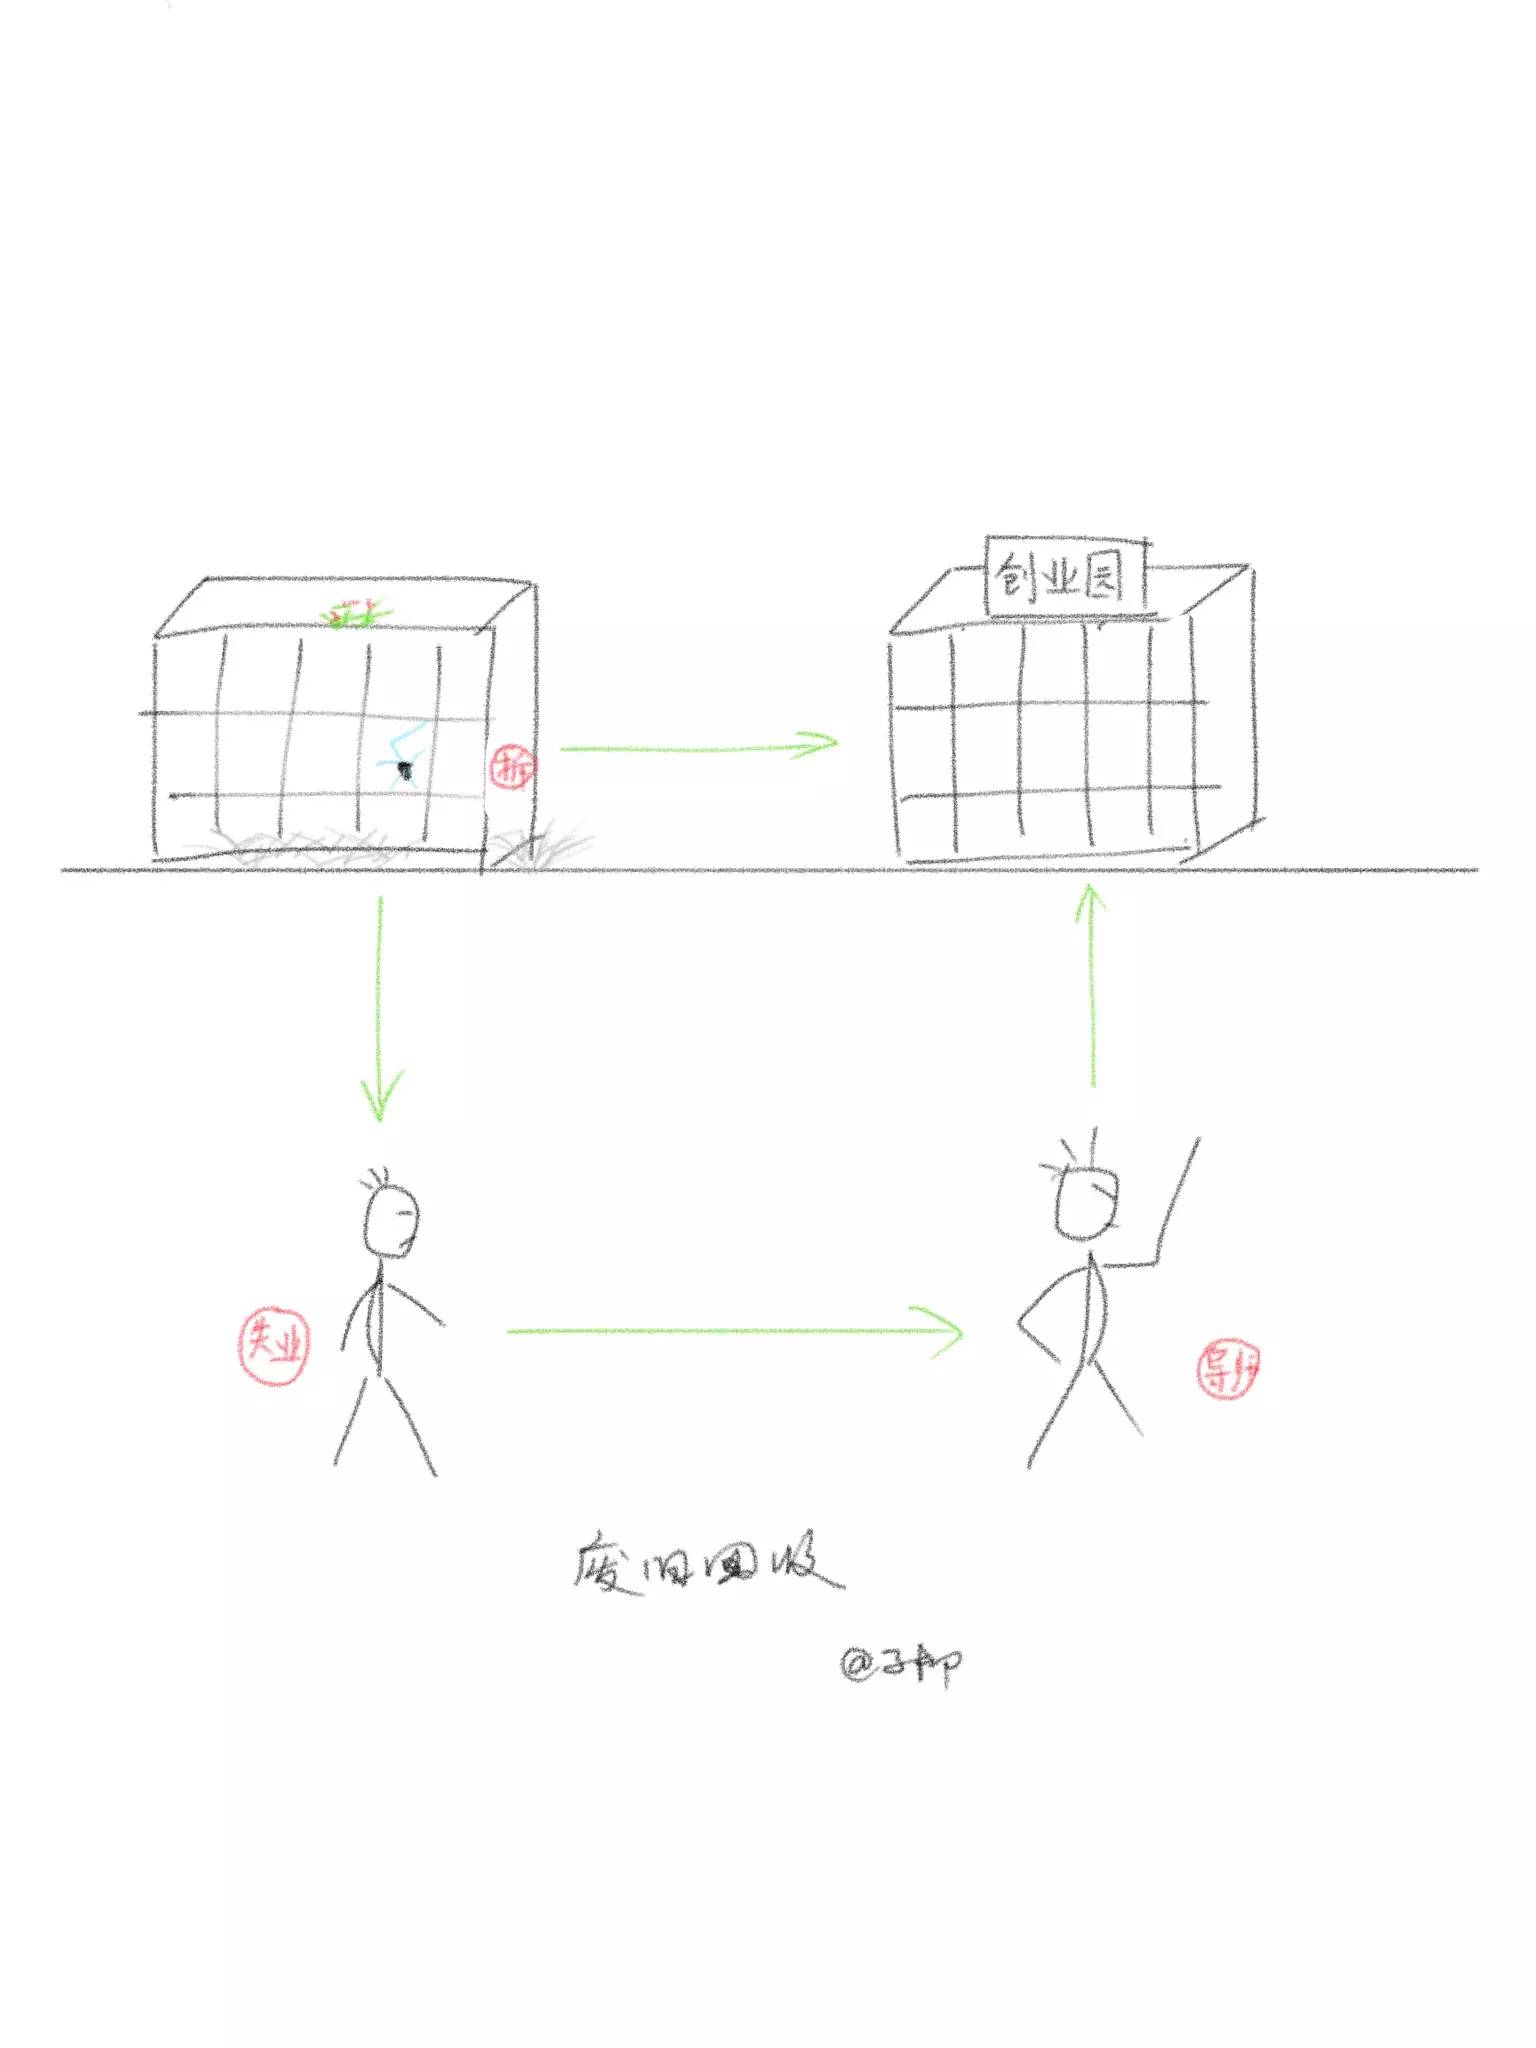 创业园
拆
失业
导师
废旧回收